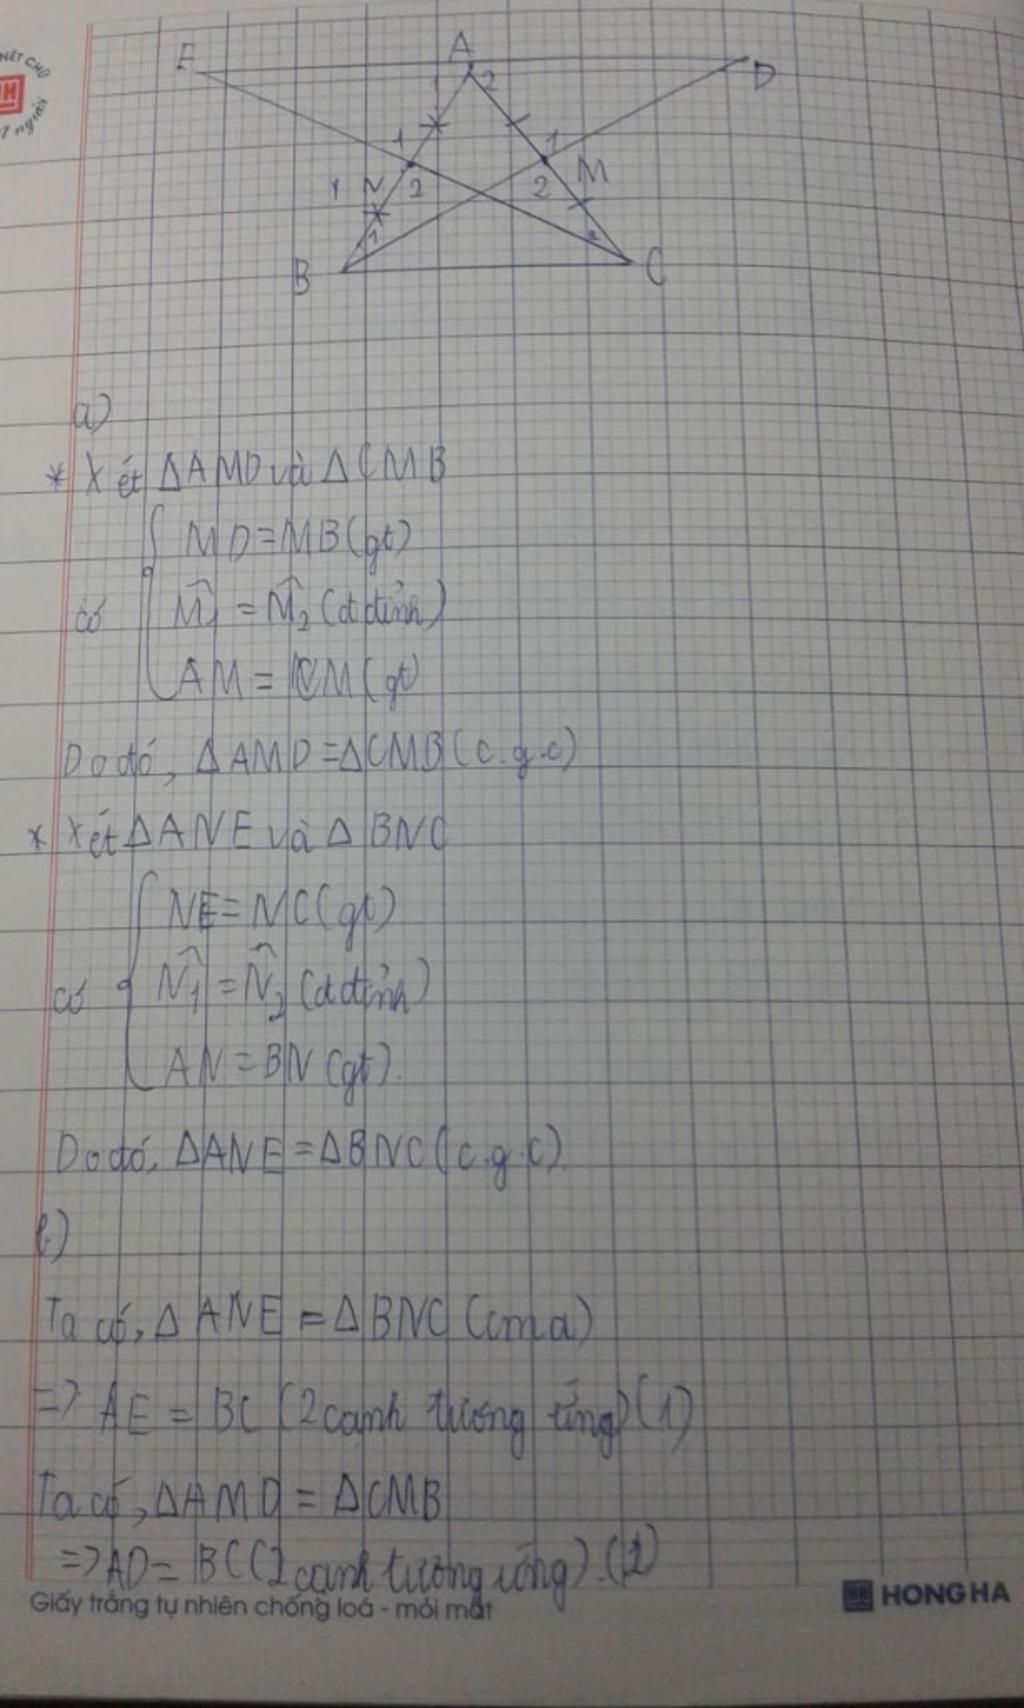 NÉT CHỮ
người
E
A
D
2
1
1
N
2
2
M
1
B
C
a)
* Xét ΔAMD và ΔCMB
MD = MB (gt)
có M̂1 = M̂2 (đ đỉnh)
AM = CM (gt)
Do đó, ΔAMD = ΔCMB (c.g.c)
* Xét ΔANE và ΔBNC
NE = NC (gt)
có N̂1 = N̂2 (đ đỉnh)
AN = BN (gt).
Do đó, ΔANE = ΔBNC (c.g.c)
b)
Ta có, ΔANE = ΔBNC (cm a)
=> AE = BC (2 cạnh tương ứng) (1)
Ta có, ΔAMD = ΔCMB
=> AD = BC (2 cạnh tương ứng). (2)
Giấy trắng tự nhiên chống loá - mỏi mắt
HONG HA